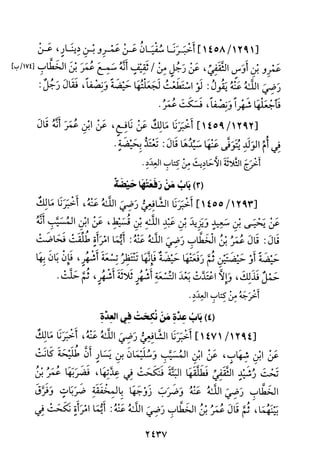 [١٤٥٨/١٢٩١] أَخْبَرَنَا سُفْيَانُ عَنْ عَمْرِو بْنِ دِينَارٍ، عَنْ
عَمْرِو بْنِ أَوْسٍ الثَّقَفِيِّ، عَنْ رَجُلٍ مِنْ / ثَقِيْفٍ أَنَّهُ سَمِعَ عُمَرَ بْنَ الخَطَّابِ [١٧٤/ب]
رَضِيَ اللَّهُ عَنْهُ يَقُولُ: لَوْ اسْتَطَعْتُ لَجَعَلْتُهَا حَيْضَةً وَنِصْفاً، فَقَالَ رَجُلٌ:
فَاجْعَلْهَا شَهْراً وَنِصْفاً، فَسَكَتَ عُمَرُ.
[١٤٥٩/١٢٩٢] أَخْبَرَنَا مَالِكٌ عَنْ نَافِعٍ، عَنْ ابْنِ عُمَرَ أَنَّهُ قَالَ
فِي أُمِّ الوَلَدِ يُتَوَفَّى عَنْهَا سَيِّدُهَا قَالَ: تَعْتَدُّ بِحَيْضَةٍ.
أَخْرَجَ الأَحَادِيثَ الثَّلَاثَةَ مِنْ كِتَابِ العِدَدِ.
(٣) بَابُ مَنْ رَفَعَتْهَا حَيْضَةٌ
[١٤٥٥/١٢٩٣] أَخْبَرَنَا الشَّافِعِيُّ رَضِيَ اللَّهُ عَنْهُ، أَخْبَرَنَا مَالِكٌ
عَنْ يَحْيَى بْنِ سَعِيدٍ وَيَزِيدَ بْنِ عَبْدِ اللَّهِ بْنِ قُسَيْطٍ، عَنْ ابْنِ المُسَيَّبِ أَنَّهُ
قَالَ: قَالَ عُمَرُ بْنُ الخَطَّابِ رَضِيَ اللَّهُ عَنْهُ: أَيُّمَا امْرَأَةٍ طُلِّقَتْ فَحَاضَتْ
حَيْضَةً أَوْ حَيْضَتَيْنِ ثُمَّ رَفَعَتْهَا حَيْضَةٌ فَإِنَّهَا تَنْتَظِرُ تِسْعَةَ أَشْهُرٍ، فَإِنْ بَانَ بِهَا
حَمْلٌ فَذَلِكَ، وَإِلاَّ اعْتَدَّتْ بَعْدَ التِّسْعَةِ أَشْهُرٍ ثَلَاثَةَ أَشْهُرٍ، ثُمَّ حَلَّتْ.
أَخْرَجَهُ مِنْ كِتَابِ العِدَدِ.
(٤) بَابُ عِدَّةِ مَنْ نُكِحَتْ فِي العِدَّةِ
[١٤٧١/١٢٩٤] أَخْبَرَنَا الشَّافِعِيُّ رَضِيَ اللَّهُ عَنْهُ، أَخْبَرَنَا مَالِكٌ
عَنْ ابْنِ شِهَابٍ، عَنْ ابْنِ المُسَيَّبِ وَسُلَيْمَانَ بنِ يَسَارٍ أَنَّ طُلَيْحَةَ كَانَتْ
تَحْتَ رُشَيْدٍ الثَّقَفِيِّ فَطَلَّقَهَا البَتَّةَ فَنَكَحَتْ فِي عِدَّتِهَا، فَضَرَبَهَا عُمَرُ بْنُ
الخطاب رَضِيَ اللَّهُ عَنْهُ وَضَرَبَ زَوْجَهَا بِالمِخْفَقَةِ ضَرَبَاتٍ وَفَرَّقَ
بَيْنَهُمَا، ثُمَّ قَالَ عُمَرُ بْنُ الخطاب رَضِيَ اللَّهُ عَنْهُ: أَيُّمَا امْرَأَةٍ نَكَحَتْ فِي
٢٤٣٧